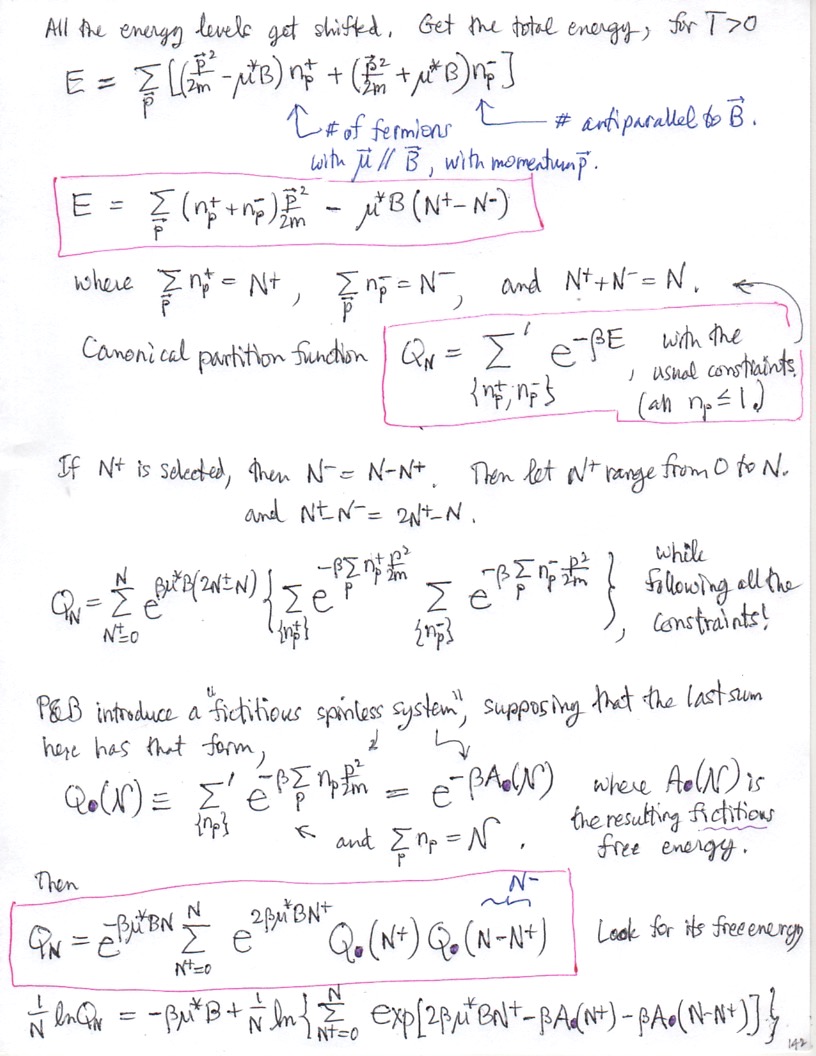 All the energy levels get shifted. Get the total energy, for T>0
E = Σ_p⃗ [(p⃗²/2m - μ*B) n_p⁺ + (p⃗²/2m + μ*B) n_p⁻]
# of fermions # antiparallel to B⃗.
with μ⃗ // B⃗, with momentum p⃗.
E = Σ_p⃗ (n_p⁺ + n_p⁻) p⃗²/2m - μ*B (N⁺ - N⁻)
where Σ_p⃗ n_p⁺ = N⁺, Σ_p⃗ n_p⁻ = N⁻, and N⁺ + N⁻ = N.
Canonical partition function Q_N = Σ'_{n_p⁺, n_p⁻} e^{-βE}, with the usual constraints. (all n_p ≤ 1.)
If N⁺ is selected, then N⁻ = N-N⁺. Then let N⁺ range from 0 to N.
and N⁺-N⁻ = 2N⁺-N.
Q_N = Σ_{N⁺=0}^{N} e^{βμ*B(2N⁺-N)} { Σ_{n_p⁺} e^{-β Σ_p n_p⁺ p²/2m} Σ_{n_p⁻} e^{-β Σ_p n_p⁻ p²/2m} }, while following all the constraints!
P&B introduce a "fictitious spinless system", supposing that the last sum
here has that form,
Q₀(N) ≡ Σ'_{n_p} e^{-β Σ_p n_p p²/2m} = e^{-βA₀(N)} where A₀(N) is
the resulting fictitious
and Σ_p n_p = N. free energy.
Then
N⁻
Q_N = e^{-βμ*BN} Σ_{N⁺=0}^{N} e^{2βμ*BN⁺} Q₀(N⁺) Q₀(N-N⁺) Look for its free energy
1/N ln Q_N = -βμ*B + 1/N ln { Σ_{N⁺=0}^{N} exp[2βμ*BN⁺ - βA₀(N⁺) - βA₀(N-N⁺)] }
142